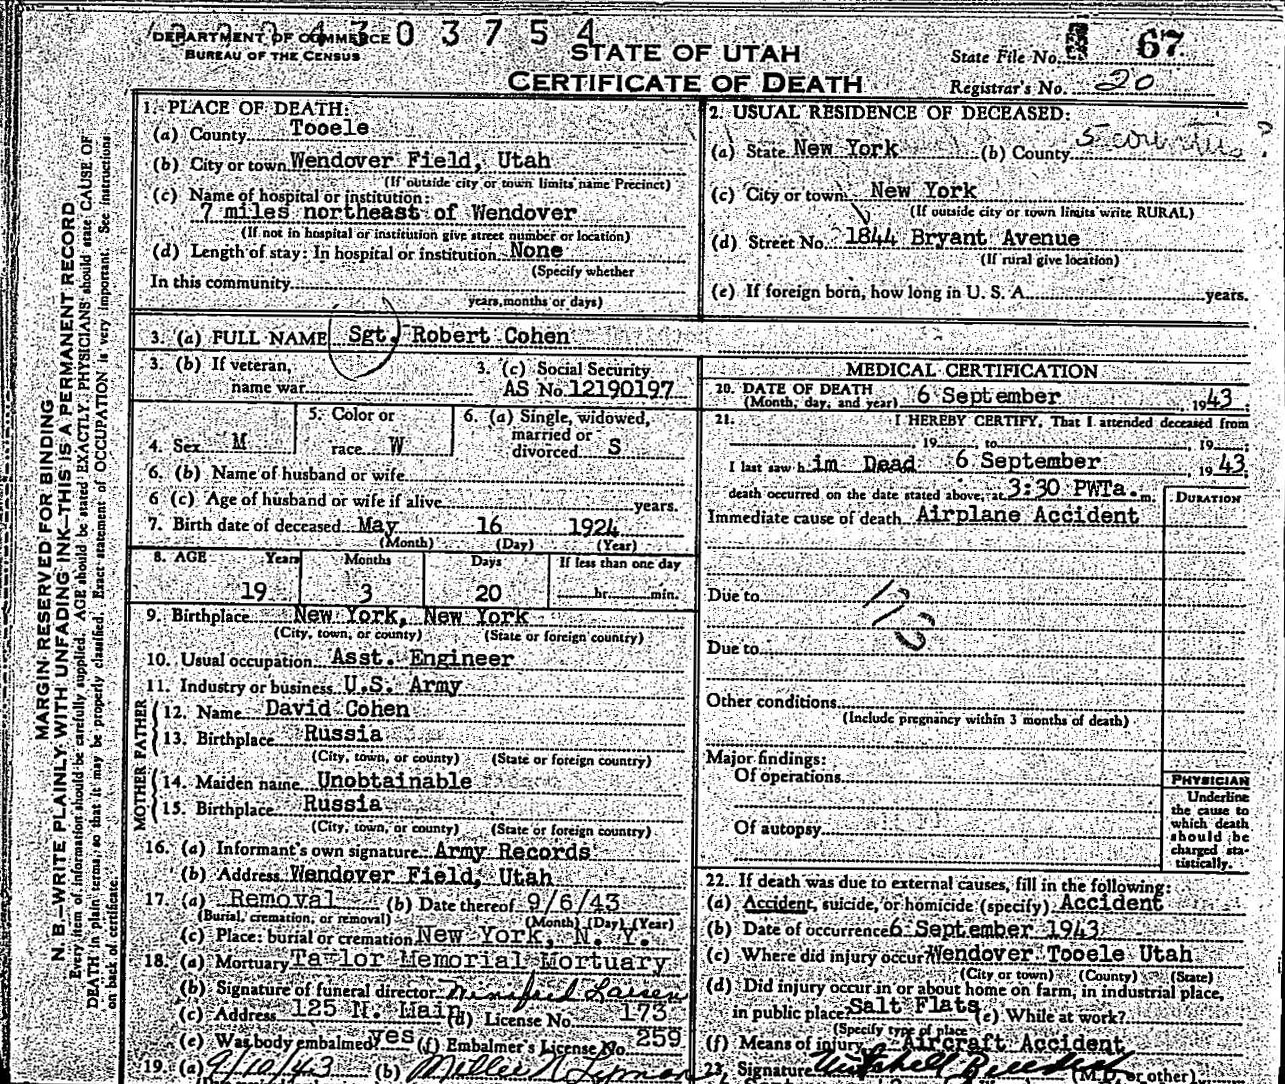 DEPARTMENT OF COMMERCE
BUREAU OF THE CENSUS
03754
STATE OF UTAH
CERTIFICATE OF DEATH
State File No. 67
Registrar's No. 20
1. PLACE OF DEATH:
(a) County Tooele
(b) City or town Wendover Field, Utah
(If outside city or town limits name Precinct)
(c) Name of hospital or institution:
7 miles northeast of Wendover
(If not in hospital or institution give street number or location)
(d) Length of stay: In hospital or institution None
(Specify whether
In this community
years, months or days)
2. USUAL RESIDENCE OF DECEASED:
(a) State New York (b) County
(c) City or town New York
(If outside city or town limits write RURAL)
(d) Street No. 1844 Bryant Avenue
(If rural give location)
(e) If foreign born, how long in U. S. A. years.
3. (a) FULL NAME Sgt. Robert Cohen
3. (b) If veteran,
name war
3. (c) Social Security
AS No. 12190197
4. Sex M
5. Color or
race W
6. (a) Single, widowed,
married or
divorced S
6. (b) Name of husband or wife
6 (c) Age of husband or wife if alive years.
7. Birth date of deceased May 16 1924
(Month) (Day) (Year)
8. AGE Years Months Days If less than one day
19 3 20 hr. min.
9. Birthplace New York, New York
(City, town, or county) (State or foreign country)
10. Usual occupation Asst. Engineer
11. Industry or business U.S. Army
FATHER
12. Name David Cohen
13. Birthplace Russia
(City, town, or county) (State or foreign country)
MOTHER
14. Maiden name Unobtainable
15. Birthplace Russia
(City, town, or county) (State or foreign country)
16. (a) Informant's own signature Army Records
(b) Address Wendover Field, Utah
17. (a) Removal (b) Date thereof 9/6/43
(Burial, cremation, or removal) (Month) (Day) (Year)
(c) Place: burial or cremation New York, N. Y.
18. (a) Mortuary Taylor Memorial Mortuary
(b) Signature of funeral director Winifred Larsen
(c) Address 125 N. Main (d) License No. 173
(e) Was body embalmed? yes (f) Embalmer's License No. 259
19. (a) 9/10/43 (b)
MEDICAL CERTIFICATION
20. DATE OF DEATH
(Month, day, and year) 6 September, 1943.
21. I HEREBY CERTIFY, That I attended deceased from
, 19 , to , 19
I last saw him Dead 6 September, 1943.
death occurred on the date stated above, at 3:30 PWTa. m.
DURATION
Immediate cause of death Airplane Accident
Due to
Due to
Other conditions
(Include pregnancy within 3 months of death)
Major findings:
Of operations
Of autopsy
PHYSICIAN
Underline
the cause to
which death
should be
charged sta-
tistically.
22. If death was due to external causes, fill in the following:
(a) Accident, suicide, or homicide (specify) Accident
(b) Date of occurrence 6 September 1943
(c) Where did injury occur? Wendover Tooele Utah
(City or town) (County) (State)
(d) Did injury occur in or about home on farm, in industrial place,
in public place? Salt Flats (e) While at work?
(Specify type of place
(f) Means of injury Aircraft Accident
23. Signature (M.D. or other)
MARGIN RESERVED FOR BINDING
N. B.—WRITE PLAINLY WITH UNFADING INK—THIS IS A PERMANENT RECORD
Every item of information should be carefully supplied. AGE should be stated EXACTLY. PHYSICIANS should state CAUSE OF
DEATH in plain terms, so that it may be properly classified. Exact statement of OCCUPATION is very important. See instructions
on back of certificate